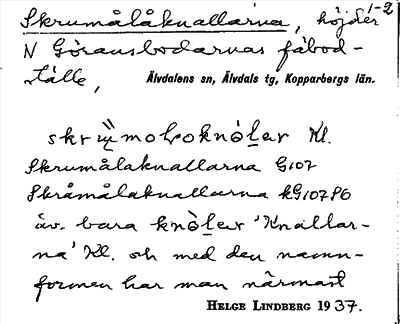 Skrumålåknallarna, höjder 1-2
N Göransbodarnas fäbod-
ställe,
Älvdalens sn, Älvdals tg, Kopparbergs län.
Kl.
Skrumålaknallarna G107
Skråmålaknallarna kG107 Pb
äv. bara knòler 'Knallar-
na' Kl. och med den namn-
formen har man närmast
HELGE LINDBERG 1937.